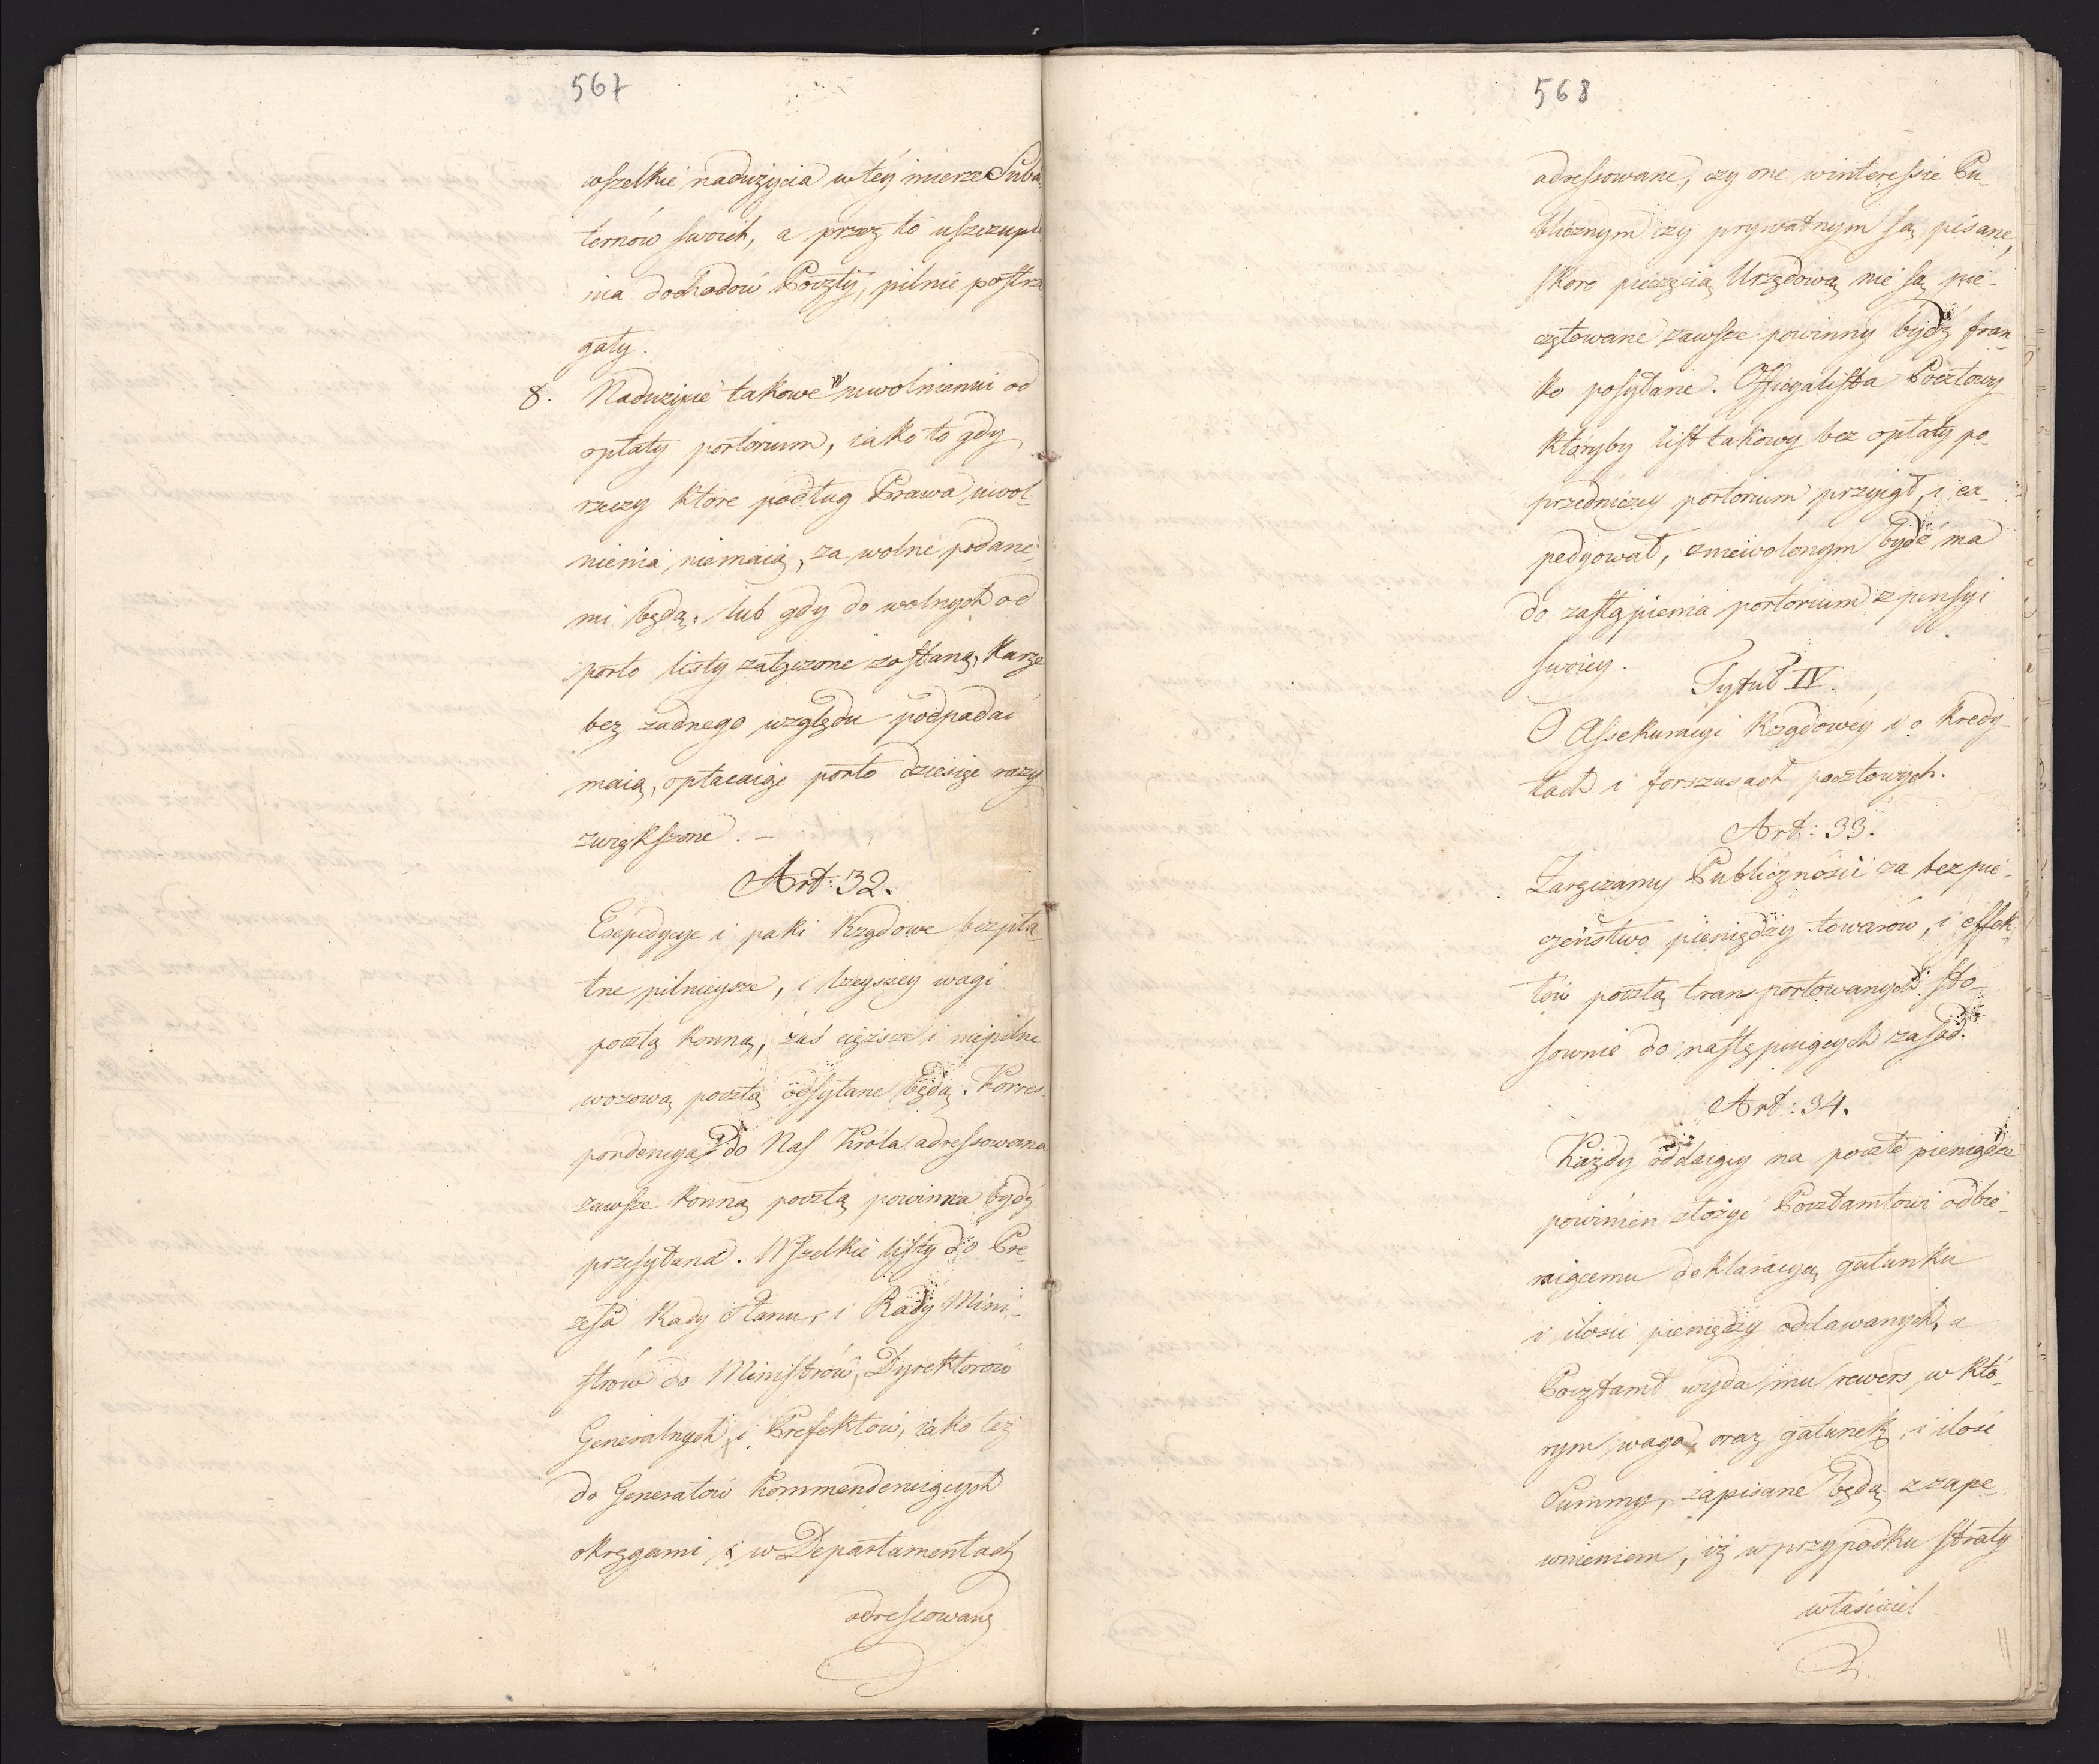 567
wszelkie nadużycia w téy mierze Suba
ternów swoich, a przez to uszczupl
nia dochodów Poczty, pilnie postrze
gały.
8. Nadużycie takowe w uwolnieniu od
opłaty portorium, iako to gdy
rzeczy które podług Prawa uwol-
nienia niemaią, za wolne podane-
mi będą, lub gdy do wolnych od
porto listy załączone zostaną, karze
bez żadnego względu podpadać
maią, opłacaiąc porto dziesięć razy
zwiększone. –
Art: 32.
Exepedycye i paki Rządowe bezpła-
tne pilnieysze, i lżeyszey wagi
pocztą konną, zaś cięższe i niepilne
wozową pocztą odsyłane będą. Korres-
pondencya do Nas Króla adressowana
zawsze konną pocztą powinna bydź
przesyłana. Wszelkie listy do Pre-
zesa Rady Stanu, i Rady Mini-
strów do Ministrów, Dyrektorów
Generalnych, i Prefektów, iako też
do Generałów Kommenderuiących
okręgami i w Departamentach
adressowane
568
adressowane, czy one w interessie Pu-
blicznym czy prywatnym są pisane,
skoro pieczęcią Urzędową nie są pie-
czętowane zawsze powinny bydź fran-
ko posyłane. Officyalista Pocztowy
któryby list takowy bez opłaty po-
przedniczey portorium przyiął, i ex-
pedyował, zniewolonym bydź ma
do zastąpienia portorium z pensyi
swoiey.
Tytuł IV.
O Assekuracyi Rządowéy i o kredy-
tach i forszusach pocztowych.
Art: 33.
Zaręczamy Publiczności za bezpie-
czeństwo pieniędzy towarów, i effek-
tów pocztą transportowanych sto-
sownie do następuiących zasad.
Art: 34.
Każdy oddaiący na pocztę pieniądze
powinien złożyć Pocztamtowi odbie-
raiącemu deklaracyą gatunku
i ilości pieniędzy oddawanych, a
Pocztamt wyda mu rewers, w któ-
rym waga, oraz gatunek, i ilość
Summy, zapisane będą z zape-
wnieniem, iż w przypadku straty
właściciel